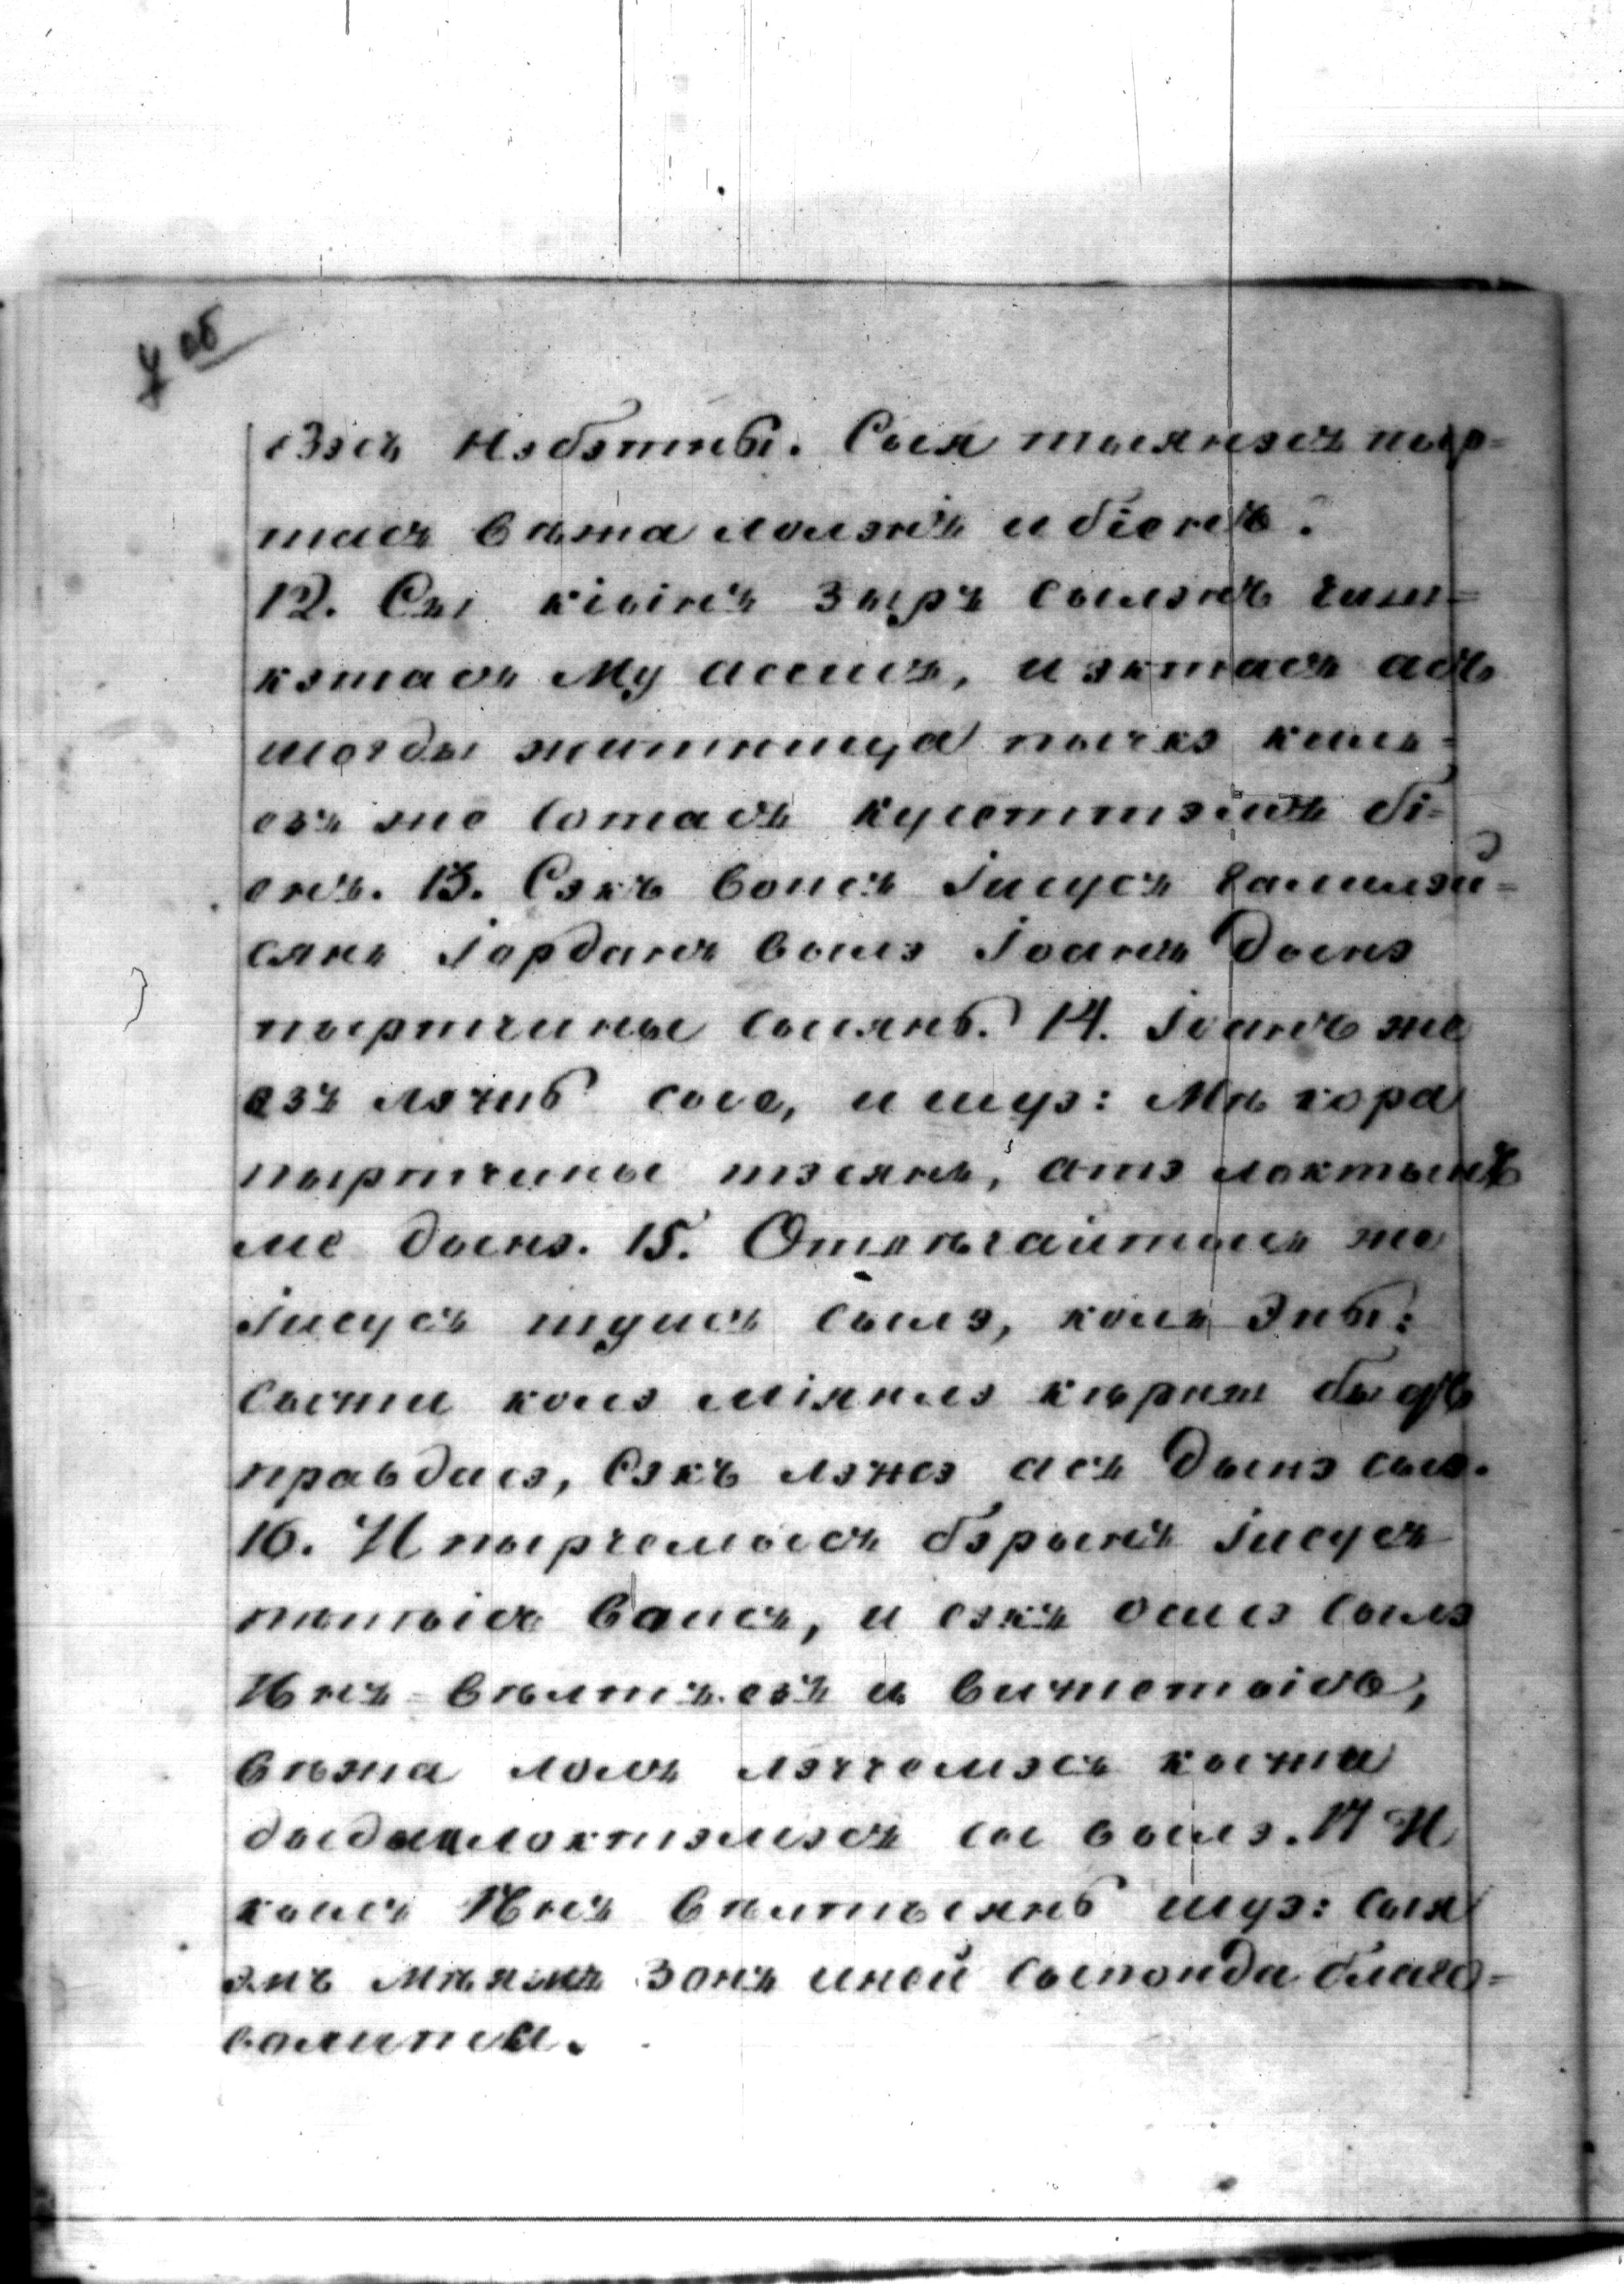 7 об
езэсъ нэбэтны. Сыя тыянэсъ пыр=
тасъ вѣжа лолэнъ и біенъ.
12. Сы кіынъ зыръ сылэнъ чыш=
кэтасъ му ассисъ, и эктасъ асъ
шогды житница пычкэ кыць=
езъ же сотасъ кусттэмъ бі=
енъ. 13. Сэкъ воисъ Іисусъ Галилэй=
сянь Іорданъ вылэ Іоаннъ дынэ
пыртчины сысянь. 14. Іоаннъ же
езъ лэчнъ сые, и шуэ: Мѣ кора
пыртчины тэсянь, а тэ локтынъ
ме дынэ. 15. Отвѣчайтысь же
Іисусъ шуисъ сылэ, коль эны:
сычжи колэ міянлэ кѣрны быдъ
правдасэ, Сэкъ лэжэ асъ дынэ сыэ.
16. И пырчемысъ бэрынъ Іисусъ
пытысь воисъ, и сэкъ осисэ сылэ
Нъ - вѣлтъ.езъ и вичжетысъ,
вѣжа лолъ лэччемэсъ кычжа
дыдылоктэмэсъ сы вылэ. 17 И
кылсъ Нъ вѣлтысянь шуэ: сыя
эмъ мѣнымъ зонъ мной сыпонда благо=
волитны.